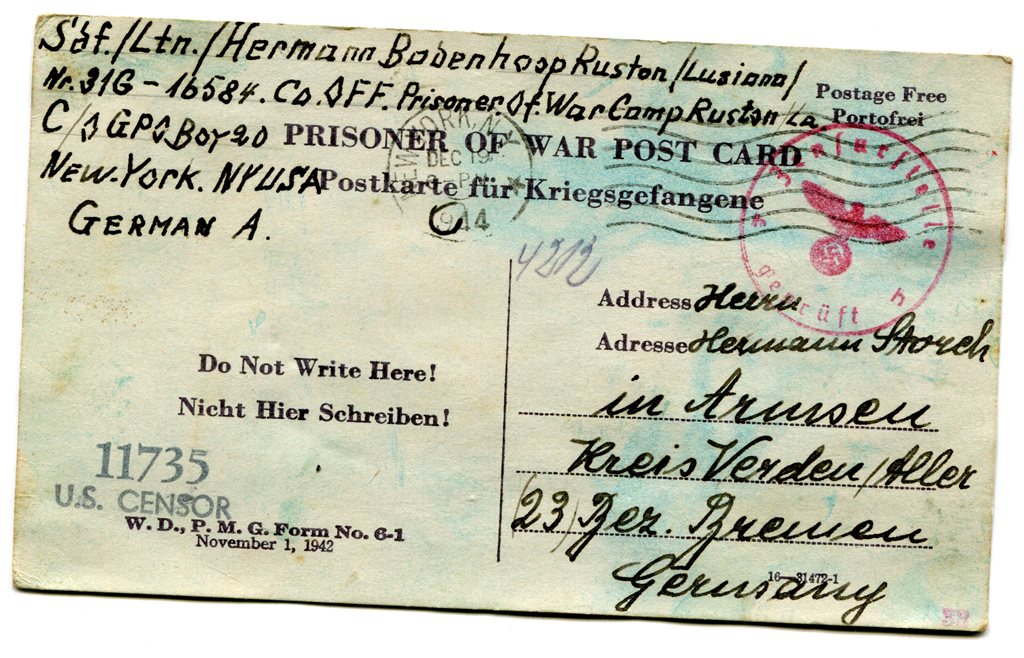 Sdf./Ltn./Hermann Bodenhoop Ruston/Lusiana/
Nr. 31G-16584. Co. OFF. Prisoner. Of. War Camp Ruston/La.
Postage Free
Portofrei
C/O GPO Box 20
PRISONER OF WAR POST CARD
NEW YORK, N.Y.
DEC 19
1944
New. York. NY USA
Postkarte für Kriegsgefangene
GERMAN A.
C
4212
geprüft
h
Address Herrn
Adresse Hermann Storch
in Armsen
Kreis Verden/Aller
(23) Bez. Bremen
Germany
Do Not Write Here!
Nicht Hier Schreiben!
11735
U.S. CENSOR
W. D., P. M. G. Form No. 6-1
November 1, 1942
16—31472-1